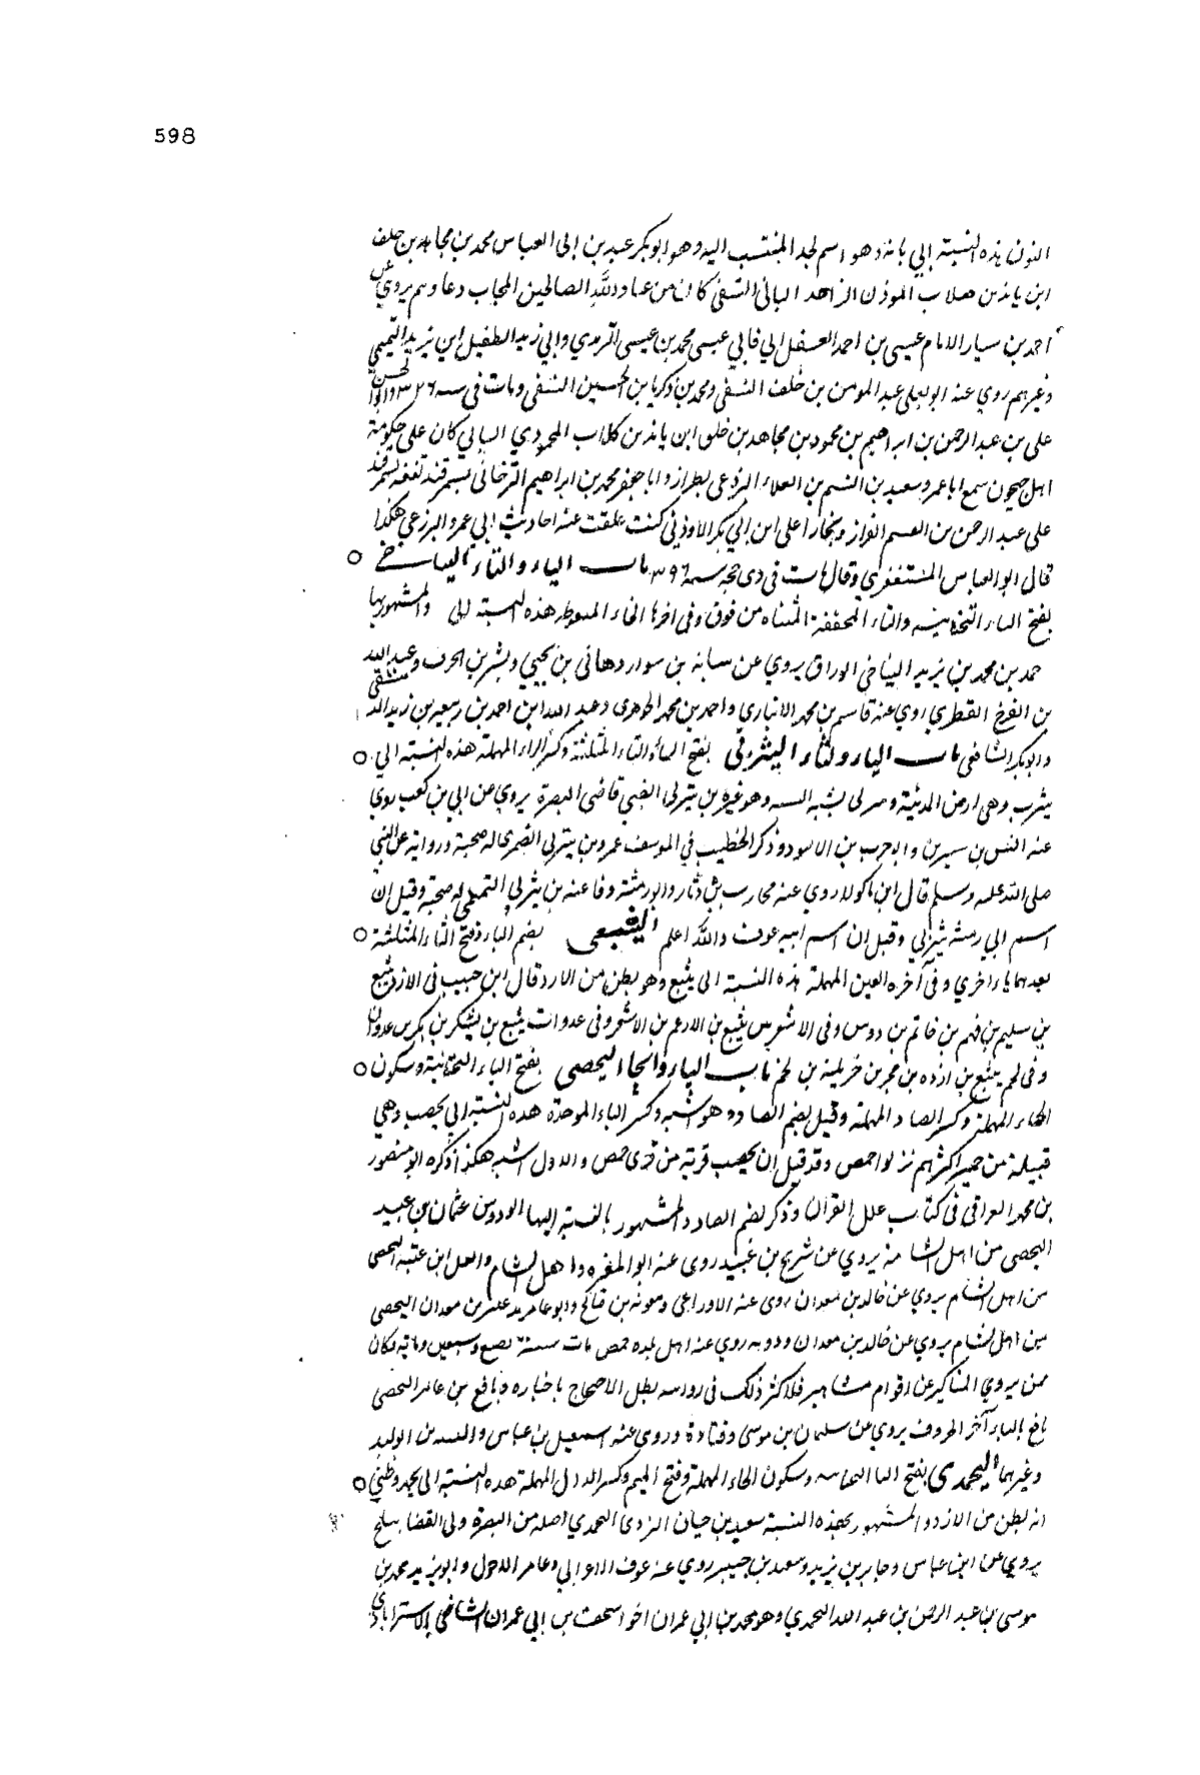 598
النون هذه النسبة إلي يانه وهو اسم لجد المنتسب اليه وهو ابو بكر عبد بن ابي العباس محمد بن مجاهد بن خلف
ابن يانه بن كلاب الموذن الزاهد الياني النسفي كان من عباد الله الصالحين المجاب دعاوهم يروي عن
احمد بن سيار الامام عيسي بن احمد العسقلاني وابي عيسى محمد بن عيسى الترمذي وابي زيد الطفيل ابن زيد التميمي
وغيرهم روي عنه ابو يعلى عبد المومن بن خلف النسفي ومحمد بن زكريا بن الحسين النسفي ومات في سنه ٣٢٦ وابو الحسن
علي بن عبد الرحمن بن ابراهيم بن محمود بن مجاهد بن خلف ابن يانه بن كلاب المحمودي الياني كان على حكومة
اهل جيحون سمع ابا عمرو سعيد بن القسم بن العلاء البرذعي بطراز وابا جعفر محمد بن ابراهيم الفرخاني بسمرقند تفقه بسمرقند
علي عبد الرحمن بن القسم القزاز وببخارا على ابن ابي بكر الاودني كنت علقت عنه احاديث ابي عمرو البرذعي هكذا
قال ابو العباس المستغفري وقال مات في ذي حجه سنه ٣٩٦ باب الياء والتاء الياتاخي
بفتح الياء التحتانيه والتاء المخففة المثناه من فوق وفي اخرها الخاء المنقوطه هذه النسبة الى والمشهور بها
حمد بن محمد بن يزيد اليتاخي الوراق يروي عن سبابه بن سوار وهاني بن يحيي وبشر بن الحرث وعبد الله
بن الفرج القنطري روي عنه قاسم بن محمد الانباري واحمد بن محمد الجوهري وعبد الله ابن احمد بن ربيعه بن زيد الدمشقي
وابو بكر الشافعي باب الياء والثاء اليثربي بفتح الياء والثاء المثلثة وكسر الراء المهملة هذه النسبة الي
يثرب وهي ارض المدينة و يثربي يشبه النسبه وهو عميره بن يثربي الضبي قاضي البصرة يروي عن ابي بن كعب روي
عنه انس بن سيرين وابو حرب بن الاسود وذكر الخطيب في الموتنف عمرو بن يثربي الضمري له صحبة ورواية عن النبي
صلى الله عليه وسلم قال ابن ماكولا روي عنه محارب بن دثار وابو رمثة رفاعه بن يثربي التميمي له صحبة وقيل ان
اسم ابي رمثه يثربي وقيل ان اسم ابيه عوف والله اعلم اليثيعي بضم الياء وفتح الثاء المثلثة
بعدها ياء اخري وفي آخره العين المهملة هذه النسبة الى يثيع وهو بطن من الازد قال ابن حبيب في الازد يثيع
بن سليم بن فهم بن غانم بن دوس وفي الاشعر يثيع بن الارغم بن الاشعر وفي عدوان يثيع بن يشكر بن بكر بن عدوان
وفي لخم يثيع بن ازده بن حجر بن جزيلة بن لخم باب الياء والحاء اليحصبي بفتح الياء التحتانية وسكون
الحاء المهملة وكسر الصاد المهملة وقيل بضم الصاد وهو اشبه وكسر الباء الموحدة هذه النسبة الي يحصب وهي
قبيلة من حمير اكثرهم نزلوا حمص وقد قيل إن يحصب قرية من قرى حمص والاول اشبه هكذا ذكره ابو منصور
بن محمد العراقي في كتاب علل القرآن وذكر بضم الصاد والمشهور بالنسبة إليها ابو دوس عثمان بن عبيد
اليحصبي من اهل الشام يروي عن شريح بن عبيد روى عنه ابو المغيره واهل الشام والعلا ابن عتبه اليحصبي
من اهل الشام يروي عن خالد بن معدان روى عنه الاوزاعي ومعاويه بن صالح وابو عائذ عفير بن معدان اليحصبي
من اهل الشام يروي عن خالد بن معدان وذويه روي عنه اهل بلده حمص مات سنة بضع وسبعين ومايه وكان
ممن يروي المناكير عن اقوام مشاهير فلما كثر ذلك في روايته بطل الاحتجاج باخباره ونافع بن عامر اليحصبي
بفتح الياء آخر الحروف يروي عن سليمان بن موسى وقتادة وروي عنه اسمعيل بن عياش والقسم بن الوليد
وغيرهما اليحمدي بفتح الياء التحتانيه وسكون الحاء المهملة وفتح الميم وكسر الدال المهملة هذه النسبة الى يحمد وظني
انه بطن من الازد والمشهور بهذه النسبة سعيد بن حيان الازدي اليحمدي اصله من البصرة ولي القضا ببلخ
يروي عن ابن عباس وجابر بن زيد وسعيد بن جبير روي عنه عوف الاعرابي وعامر الاحول وابو يزيد محمد بن
موسى بن عبد الرحمن بن عبد الله اليحمدي وهو محمد بن ابي عمران اخو اسحق بن ابي عمران الشافعي الاستراباذي